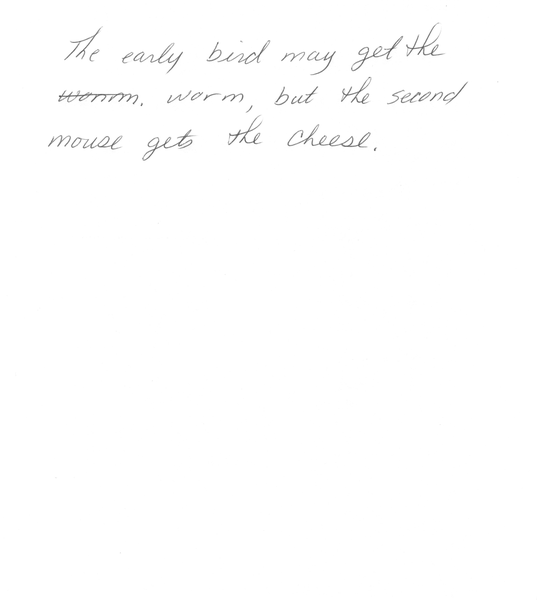 The early bird may get the
worm. worm, but the second
mouse gets the cheese.